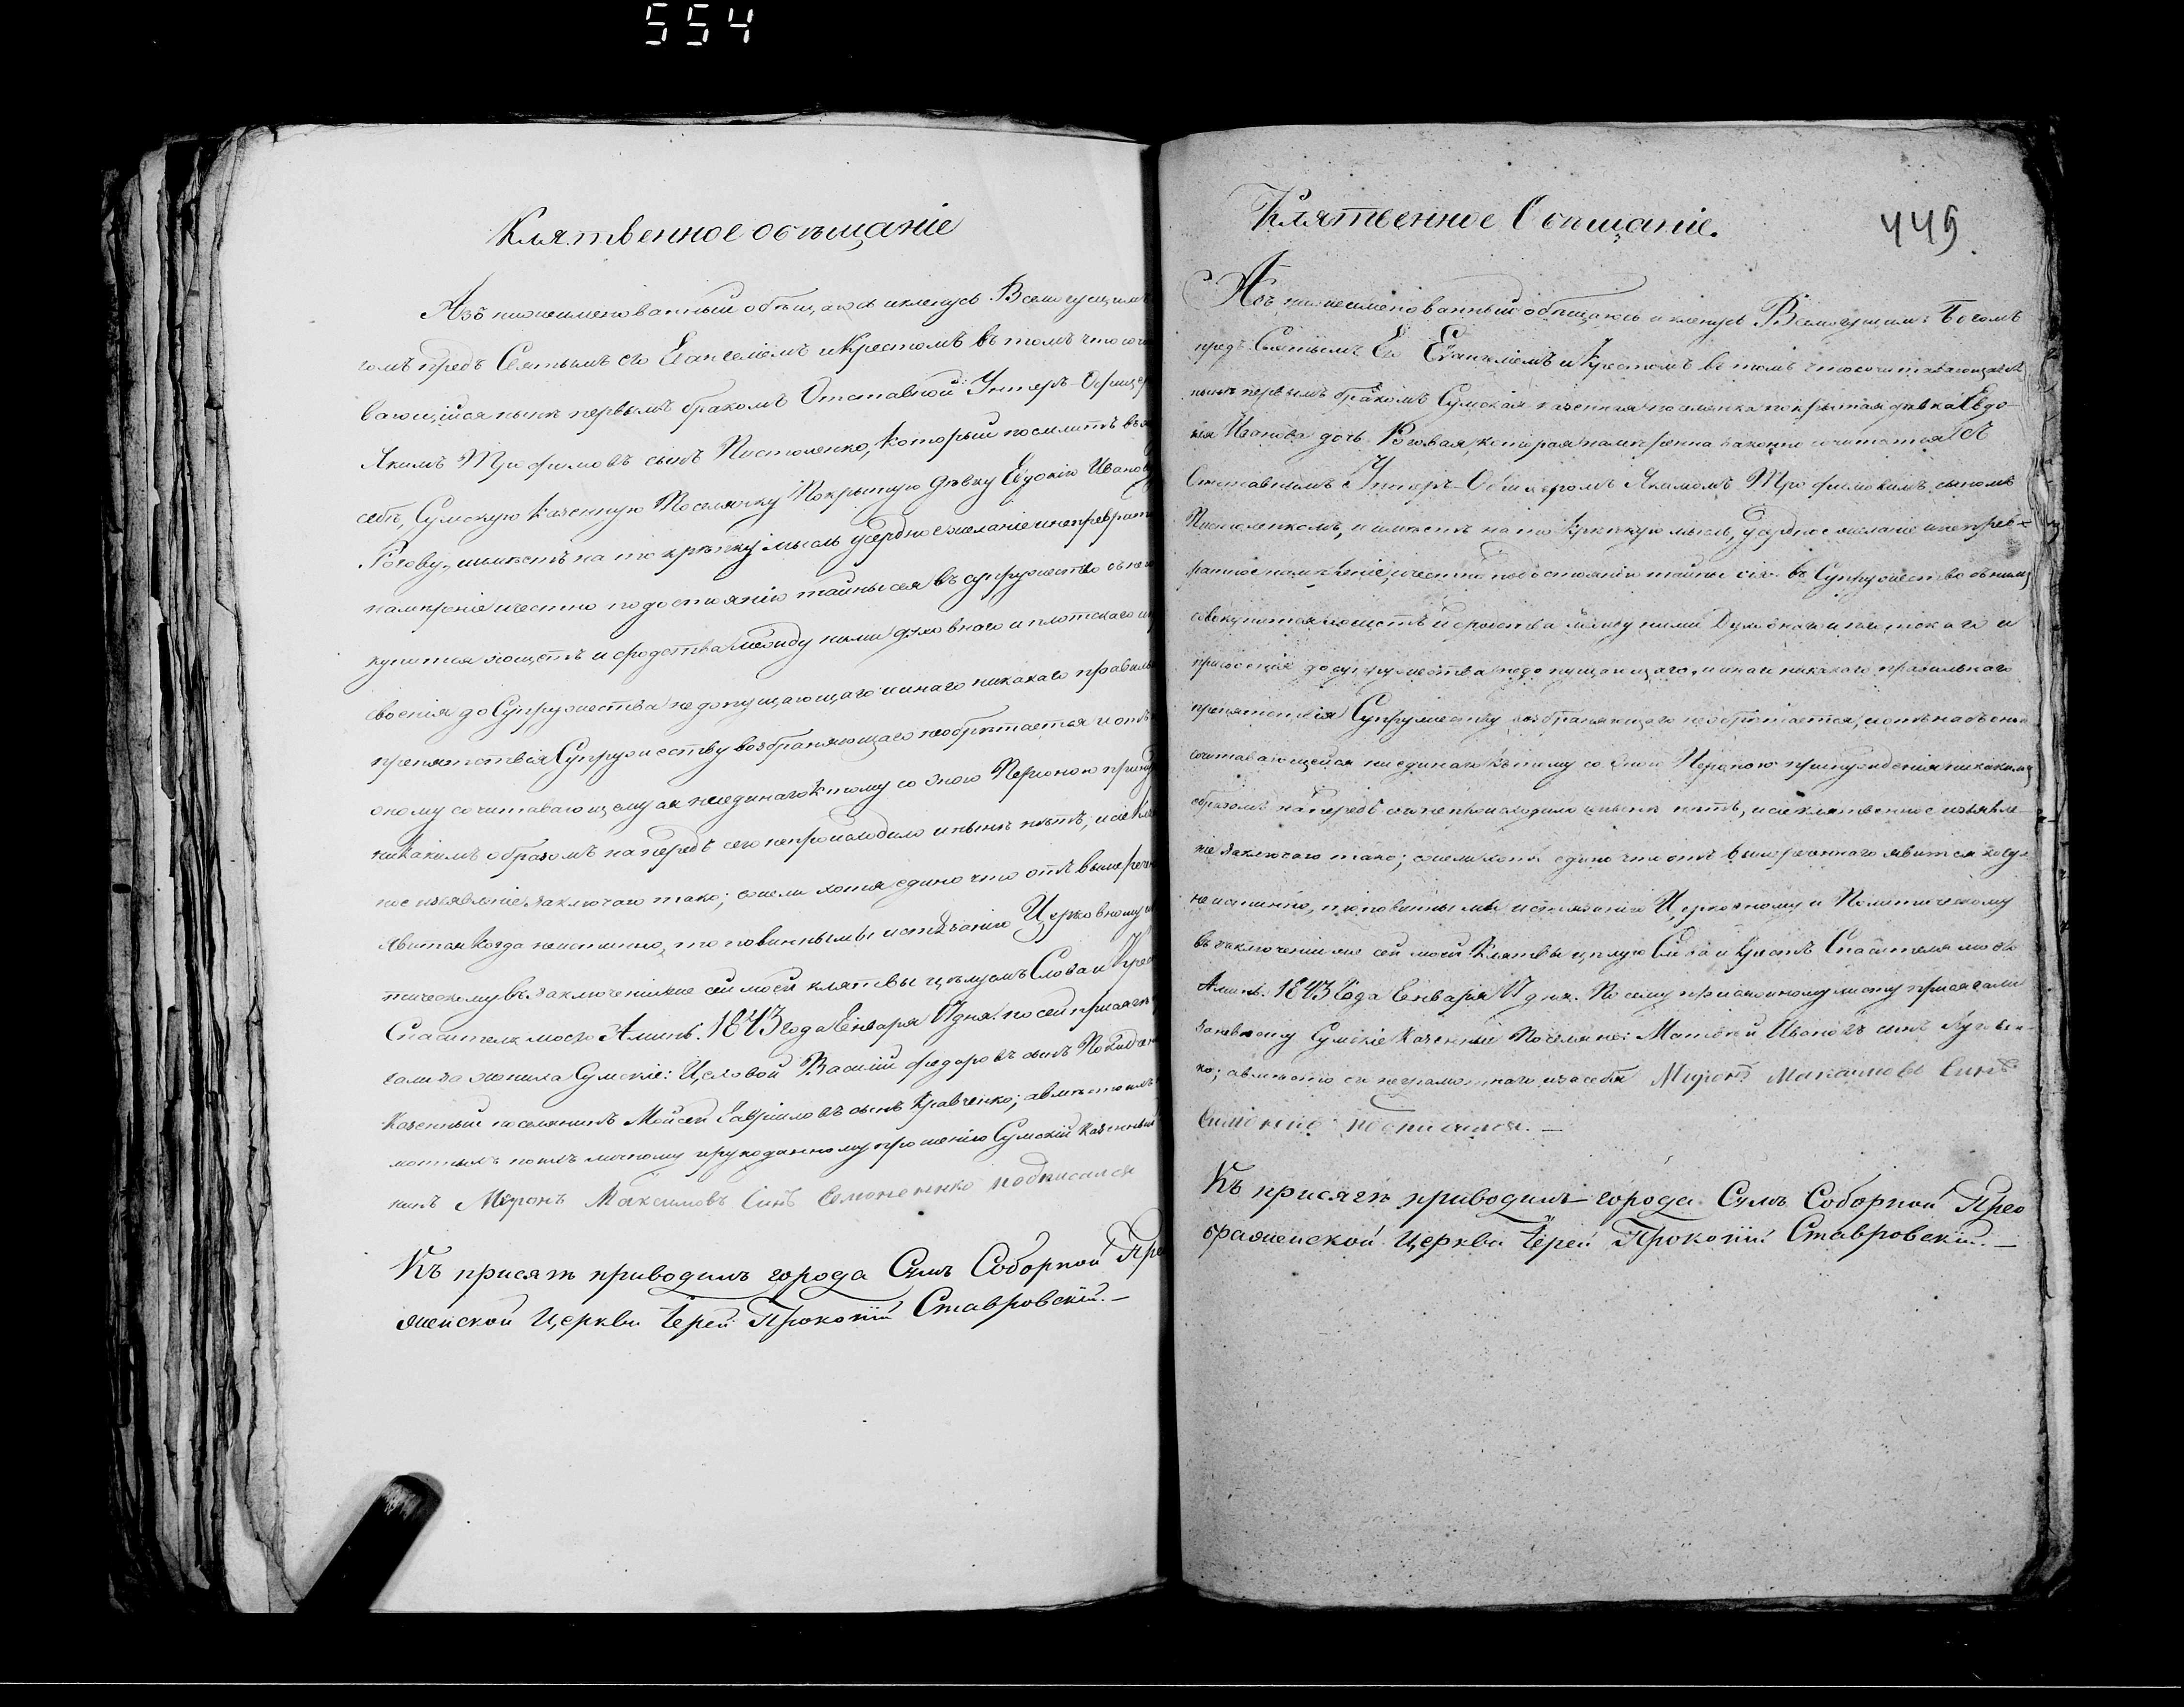 554
Клятвенное обѣщаніе
Азъ нижеименованный обѣщаюсь и кленусь Всемогущимъ
гомъ предъ Святымъ его Евангеліемъ и Крестомъ въ томъ что соче
вающійся нынѣ первымъ бракомъ Отставной Унтеръ-Офицер
Якимъ Трофимовъ сынъ Пистоленко, который поемлитъ въ
себѣ, Сумскую казенную Поселянку Покрытую дѣвку Евдокію Иванов
Рогову, имѣетъ на то крѣпку мысль усердное желаніе и непреврат
намѣреніе и честно по достоянію тайны сея въ супружество съ не
купится хощетъ и сродства между ними духовнаго и плотскаго и
своенія до Супружества недопущающаго и инаго никакаго правиль
препятствія Супружеству возбраняющаго необрѣтается и отъ
оному сочитавающемуся неединаго к тому со оною Персоною прину
никакимъ образомъ напередъ сего непроисходило и нынѣ нѣтъ, и сіе кля
ное изъявленіе заключаю тако; ежели хотя едино что отъ вышереч
явится когда неистинно, то повинны мы истязанію Церковному и
тическому въ заключеніи же сей моей клятвы цѣлуемъ Слова и Крес
Спасителя моего Аминь. 1843 года Января 17 дня. по сей присягѣ
сали за жениха Сумскіе: Цеховой Василій Федоровъ сынъ
казенный поселянинъ Мойсей Гавриловъ сынъ Кравченко; а вмѣсто ихъ
мотныхъ по ихъ личному и рукоданному прошенію Сумскій казенный
нинъ Миронъ Максимовъ Синъ Симоненко подписался
Къ присягѣ приводилъ города Сумъ Соборной Пре
женской Церкви Іерей Прокопій Ставровскій.—
449
Клятвенное Обѣщаніе.
Азъ нижеименованный обѣщаюсь и кленусь Всемогущимъ Богомъ
предъ Святымъ Его Евангеліемъ и Крестомъ въ томъ что сочитавающаяся
нынѣ первымъ бракомъ Сумская казенная поселянка покрытая дѣвка Евдо-
кія Иванова дочь Роговая, которая намѣренна законно сочитатся съ
Отставнымъ Унтеръ-Офицеромъ Якимомъ Трофимовимъ сыномъ
Пистоленкомъ, и имѣетъ на то крѣпкую мысль, усердное желаніе и непрев-
ратное намѣреніе, и честно по достоянію тайны сея въ Супружество съ нимъ
совокупится хощетъ и сродства между ними Духовнаго и плотскаго и
присвоенія до супружества недопущающаго, и инаго никакаго правильнаго
препятствія Супружеству возбраняющаго необрѣтается, и отъ
сочитавающейся ниединаго къ тому со оною Персоною принужденія никакимъ
образомъ напередъ сего непроисходило и нынѣ нѣтъ, и сіе клятвенное изъявле
ніе заключаю тако; ежели хотя едино что отъ вышереченнаго явится когда
неистинно, то повинны мы истязанію Церковному и Политическому
въ заключеніи же сей моей Клятвы цѣлую Слова и Крестъ Спасителя моего
Аминь. 1843 Года Января 17 дня. По сему присяжному листу присягали
за невѣсту Сумскіе казенный Поселяне: Матвей Ивановъ сынъ
ко; а вмѣсто ихъ неграмотнаго, и за себя Миронъ Максимовъ Синъ
Симоненко подписался.—
Къ присягѣ приводилъ города Сумъ Соборной Прео
браженской Церкви Іерей Прокопій Ставровскій.—